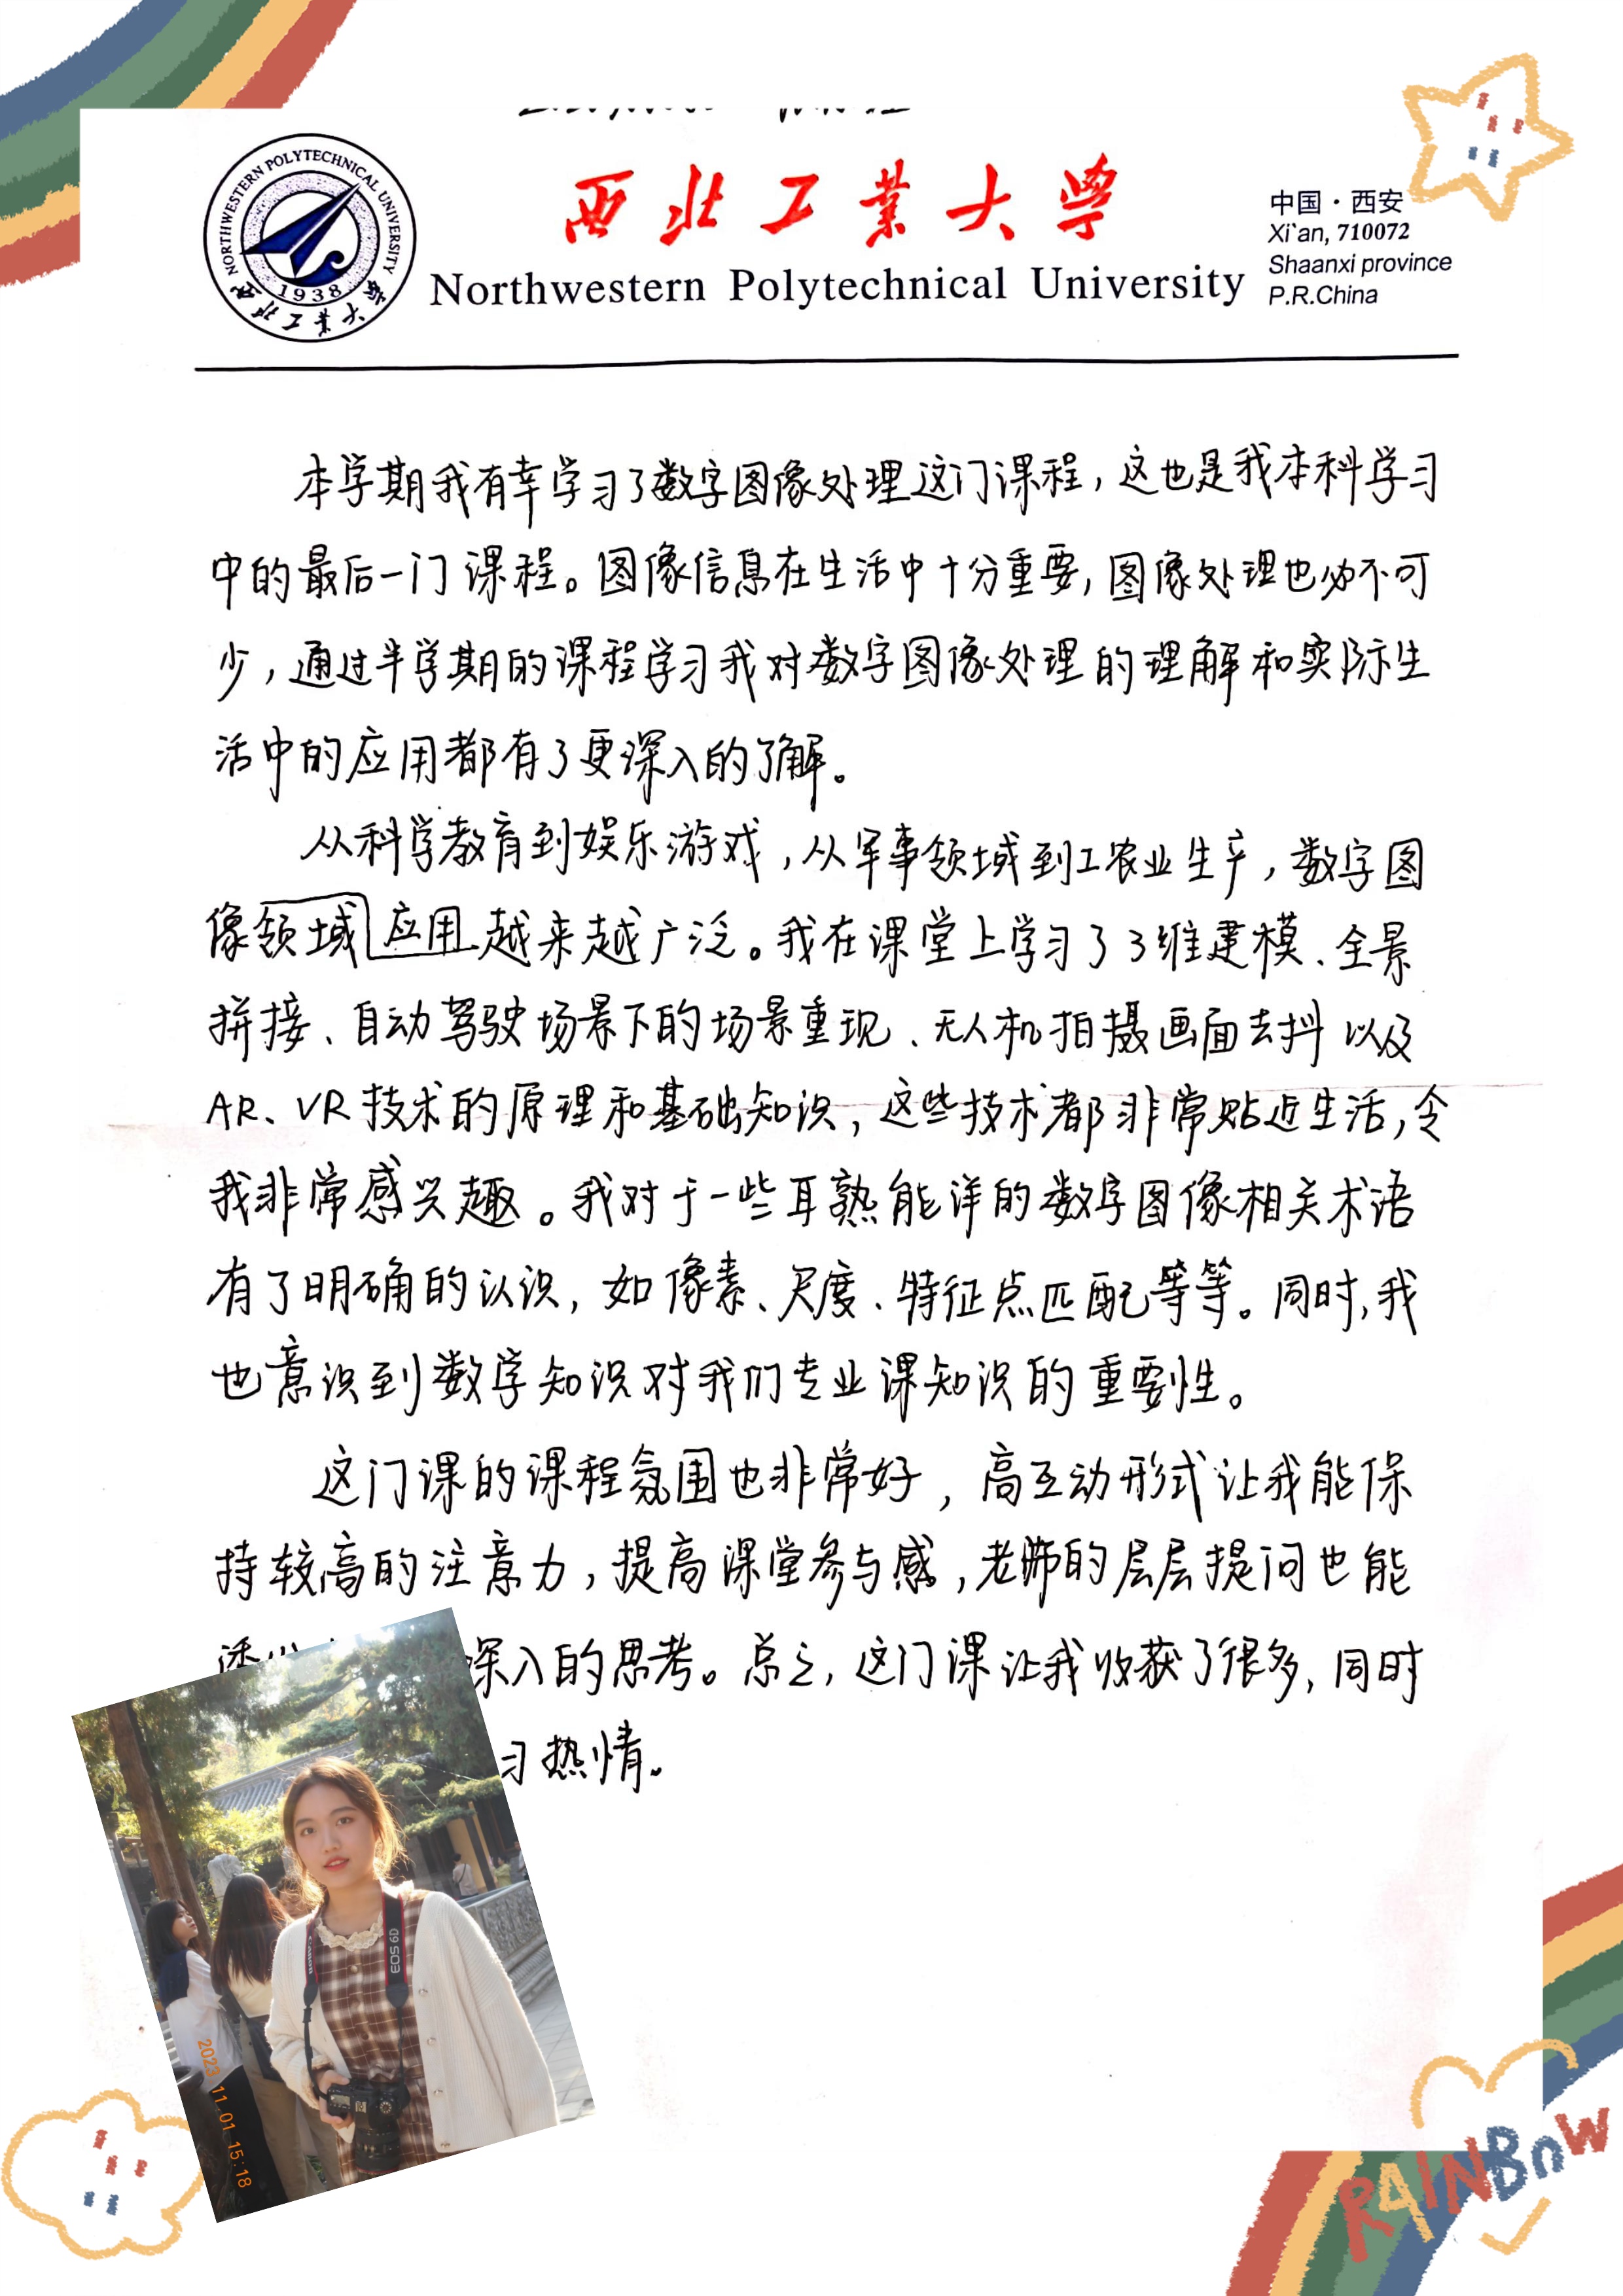 NORTHWESTERN POLYTECHNICAL UNIVERSITY
1938
西北工业大学
西北工业大学
Northwestern Polytechnical University
中国·西安
Xi`an, 710072
Shaanxi province
P.R.China
本学期我有幸学习了数字图像处理这门课程，这也是我本科学习
中的最后一门课程。图像信息在生活中十分重要，图像处理也必不可
少，通过半学期的课程学习我对数字图像处理的理解和实际生
活中的应用都有了更深入的了解。
从科学教育到娱乐游戏，从军事领域到工农业生产，数字图
像领域应用越来越广泛。我在课堂上学习了3维建模、全景
拼接、自动驾驶场景下的场景重现、无人机拍摄画面去抖以及
AR、VR技术的原理和基础知识，这些技术都非常贴近生活，令
我非常感兴趣。我对于一些耳熟能详的数字图像相关术语
有了明确的认识，如像素、尺度、特征点匹配等等。同时，我
也意识到数学知识对我们专业课知识的重要性。
这门课的课程氛围也非常好，高互动形式让我能保
持较高的注意力，提高课堂参与感，老师的层层提问也能
深入的思考。总之，这门课让我收获了很多，同时
习热情。
Canon
EOS 6D
2023 11 01 15:18
RAINBOW